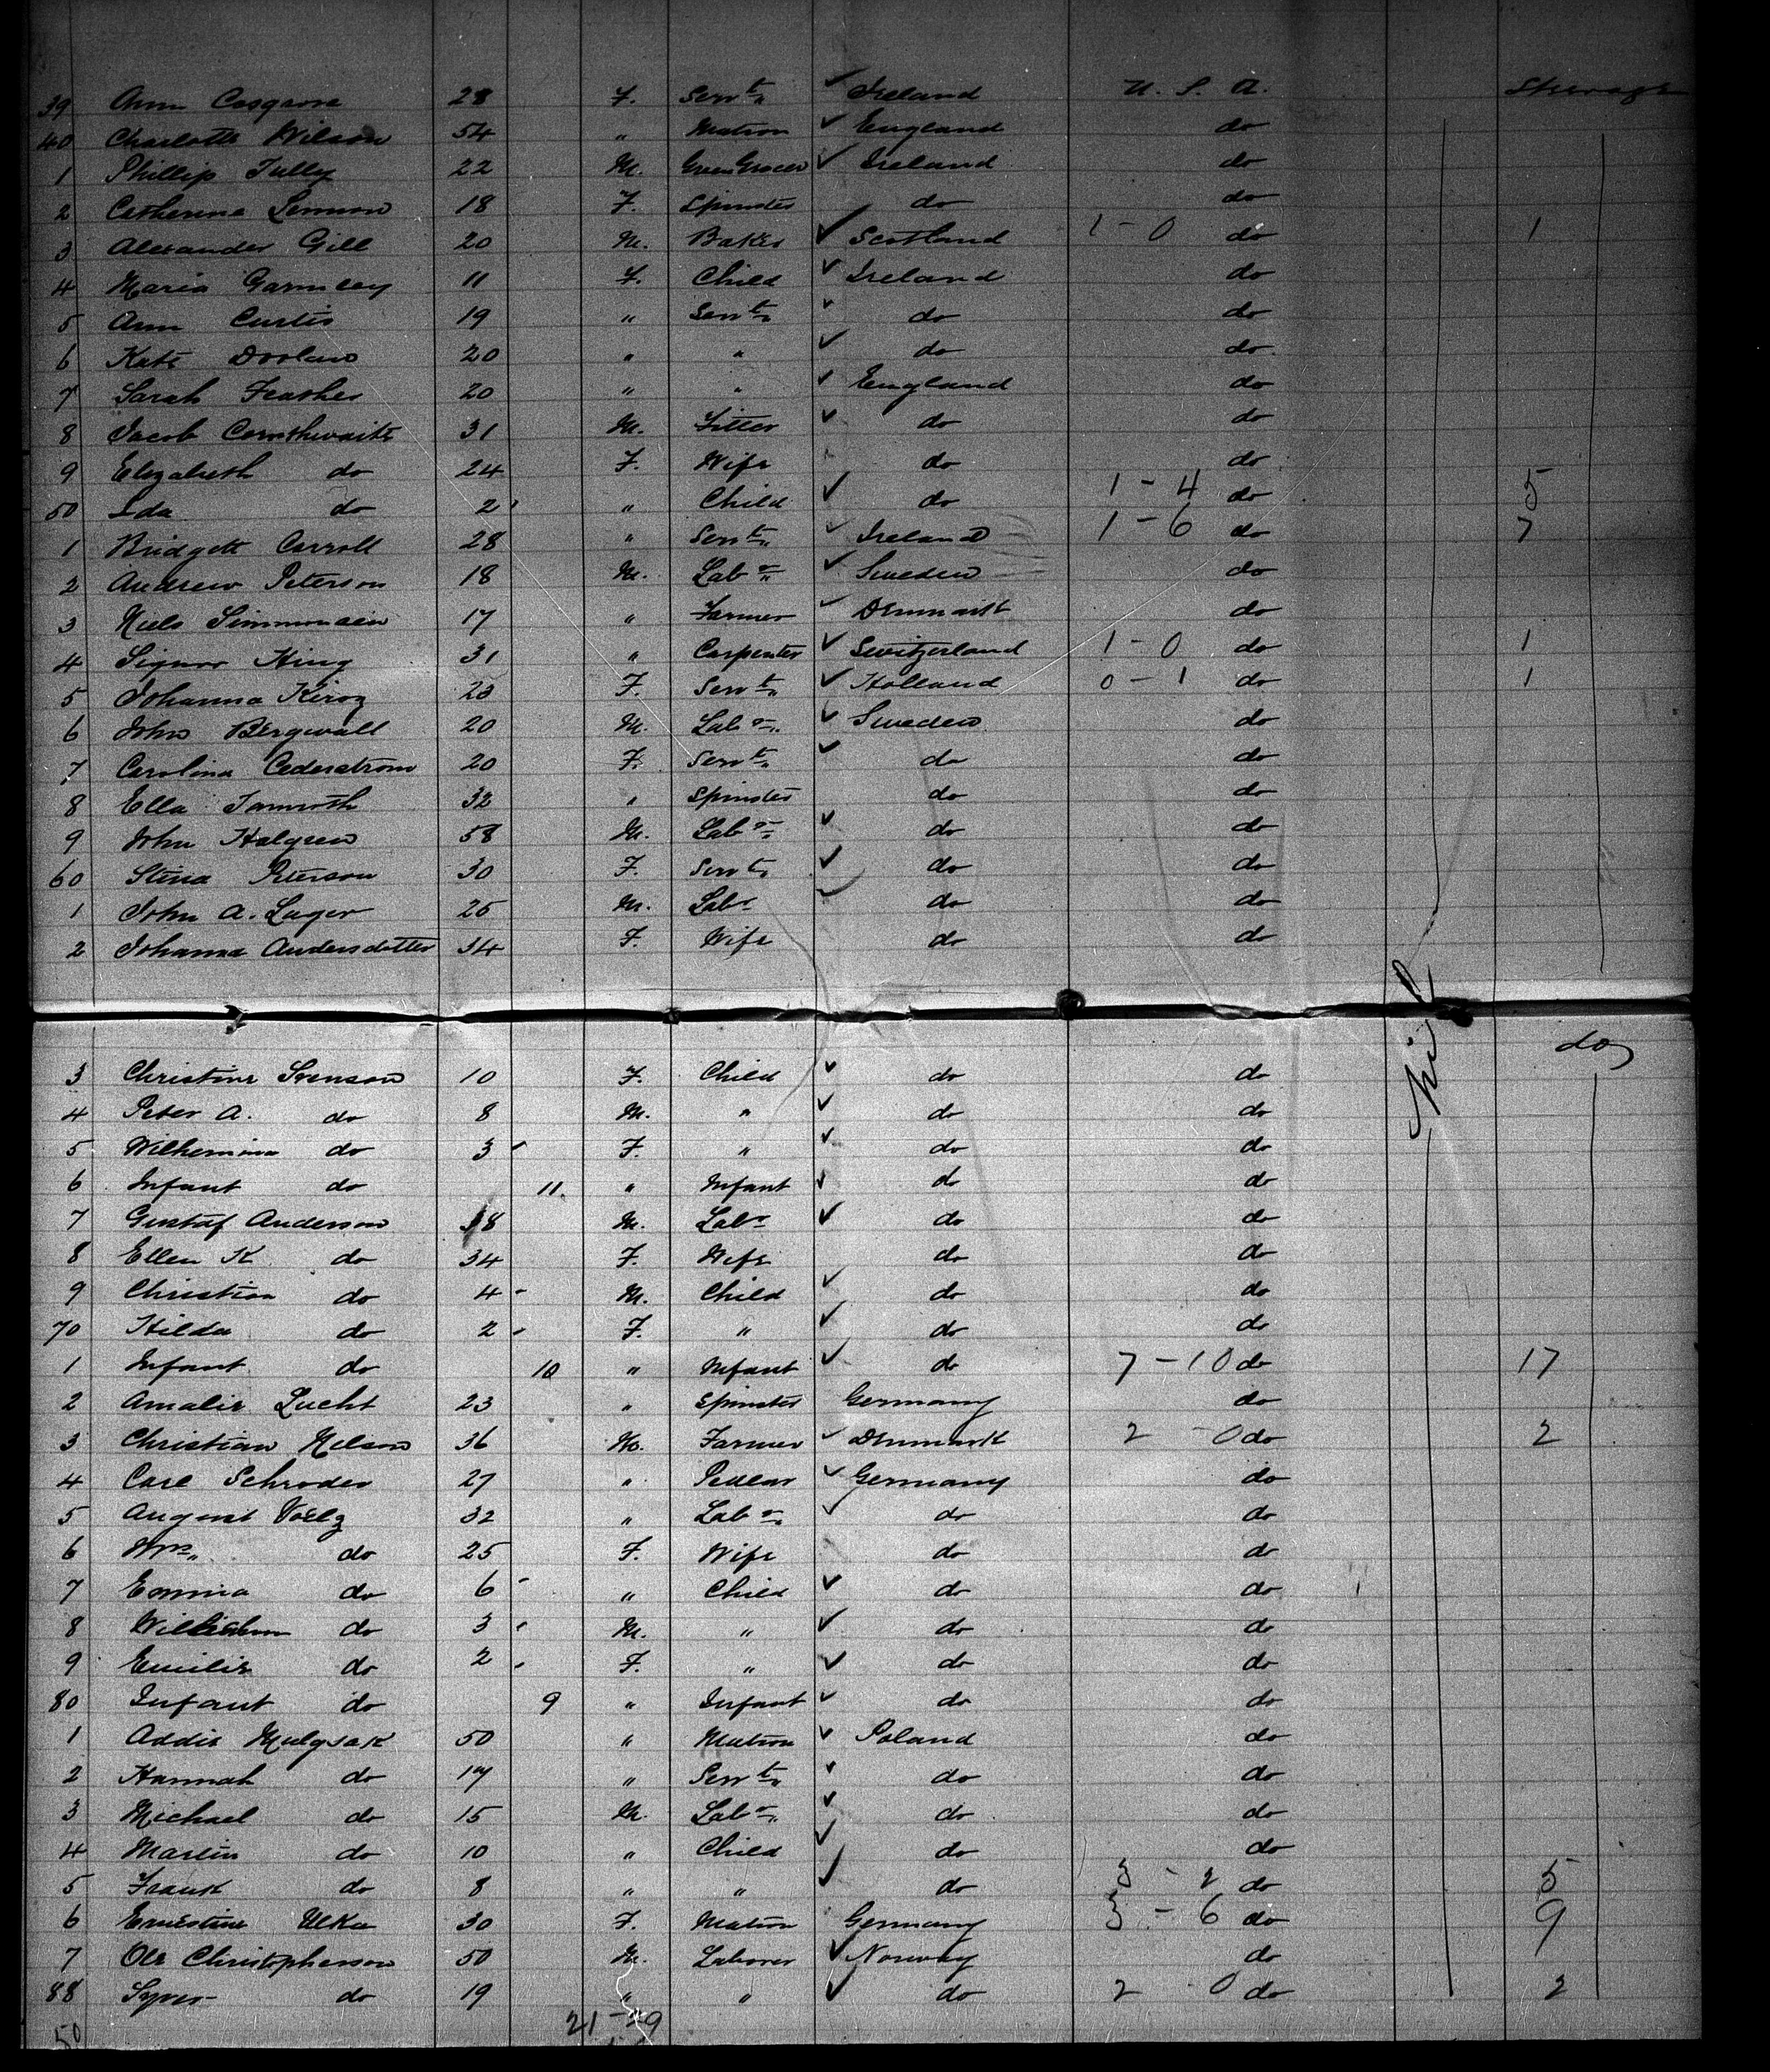 39 Ann Cosgrove 28 F. Servt. Ireland U. S. A. Steerage
40 Charlotte Wilson 54 " Matron England do
1 Phillip Tully 22 M. Green Grocer Ireland do
2 Catherine Lennon 18 F. Spinster do do
3 Alexander Gill 20 M. Baker Scotland 1 - 0 do 1
4 Maria Gormley 11 F. Child Ireland do
5 Ann Curtis 19 " Servt. do do
6 Kate 20 " " do do
7 Sarah Feather 20 " " England do
8 Jacob Cornthwaite 31 M. Fitter do do
9 Elizabeth do 24 F. Wife do do
50 Ida do 2 " Child do 1 - 4 do 5
1 Bridgett Carroll 28 " Servt. Ireland 1 - 6 do 7
2 Andrew Peterson 18 M. Labr. Sweden do
3 Niels Simmonsen 17 " Farmer Denmark do
4 King 31 " Carpenter Switzerland 1 - 0 do 1
5 Johanna 23 F. Servt. Holland 0 - 1 do 1
6 John Bergwall 20 M. Labr. Sweden do
7 Carolina Cederstrom 20 F. Servt. do do
8 Ella 32 " Spinster do do
9 John Halgren 58 M. Labr. do do
60 Stina Peterson 30 F. Servt. do do
1 John A. Lager 25 M. Labr do do
2 Johanna Andersdotter 34 F. Wife do do
Nil do
3 Christine Svenson 10 F. Child do do
4 Peter A. do 8 M. " do do
5 Wilhemina do 3 F. " do do
6 Infant do 11 " Infant do do
7 Gustaf Anderson 38 M. Labr do do
8 Ellen K do 34 F. Wife do do
9 Christian do 4 M. Child do do
70 Hilda do 2 F. " do do
1 Infant do 10 " Infant do 7 - 10 do 17
2 Amalie Lucht 23 " Spinster Germany do
3 Christian Nelson 36 M. Farmer Denmark 2 - 0 do 2
4 Carl Schroder 27 " Pedlar Germany do
5 August Voelz 32 " Labr. do do
6 Mrs. do 25 F. Wife do do
7 Emma do 6 " Child do do
8 do 3 M. " do do
9 Emilie do 2 F. " do do
80 Infant do 9 " Infant do do
1 Addie Mulgsak 50 " Matron Poland do
2 Hannah do 17 " Servt. do do
3 Michael do 15 M. Labr. do do
4 Martin do 10 " Child do do
5 Frank do 8 " " do 3 - 2 do 5
6 Ernestine 30 F. Matron Germany 3 - 6 do 9
7 Ole Christopherson 50 M. Laborer Norway do
88 Syver do 19 " " do 2 - 0 do 2
50 21 - 29